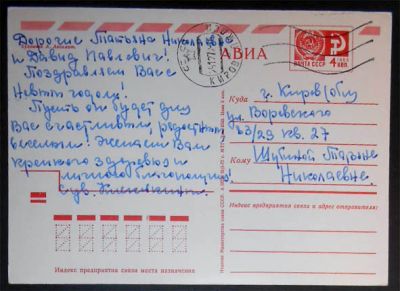 Дорогие Татьяна Николаевна
и Давид Павлович!
Поздравляем Вас с
Новым годом!
Пусть он будет для
Вас счастливым, радостным,
веселым! Желаем Вам
крепкого здоровья и
личного благополучия!
Сув.
АВИА
ПОЧТА СССР
4 коп.
КИРОВ
Куда
г. Киров (обл)
ул. Воровского
63/29 кв. 27
Кому
Шубиной Татьяне
Николаевне
Индекс предприятия связи и адрес отправителя:
Индекс предприятия связи места назначения